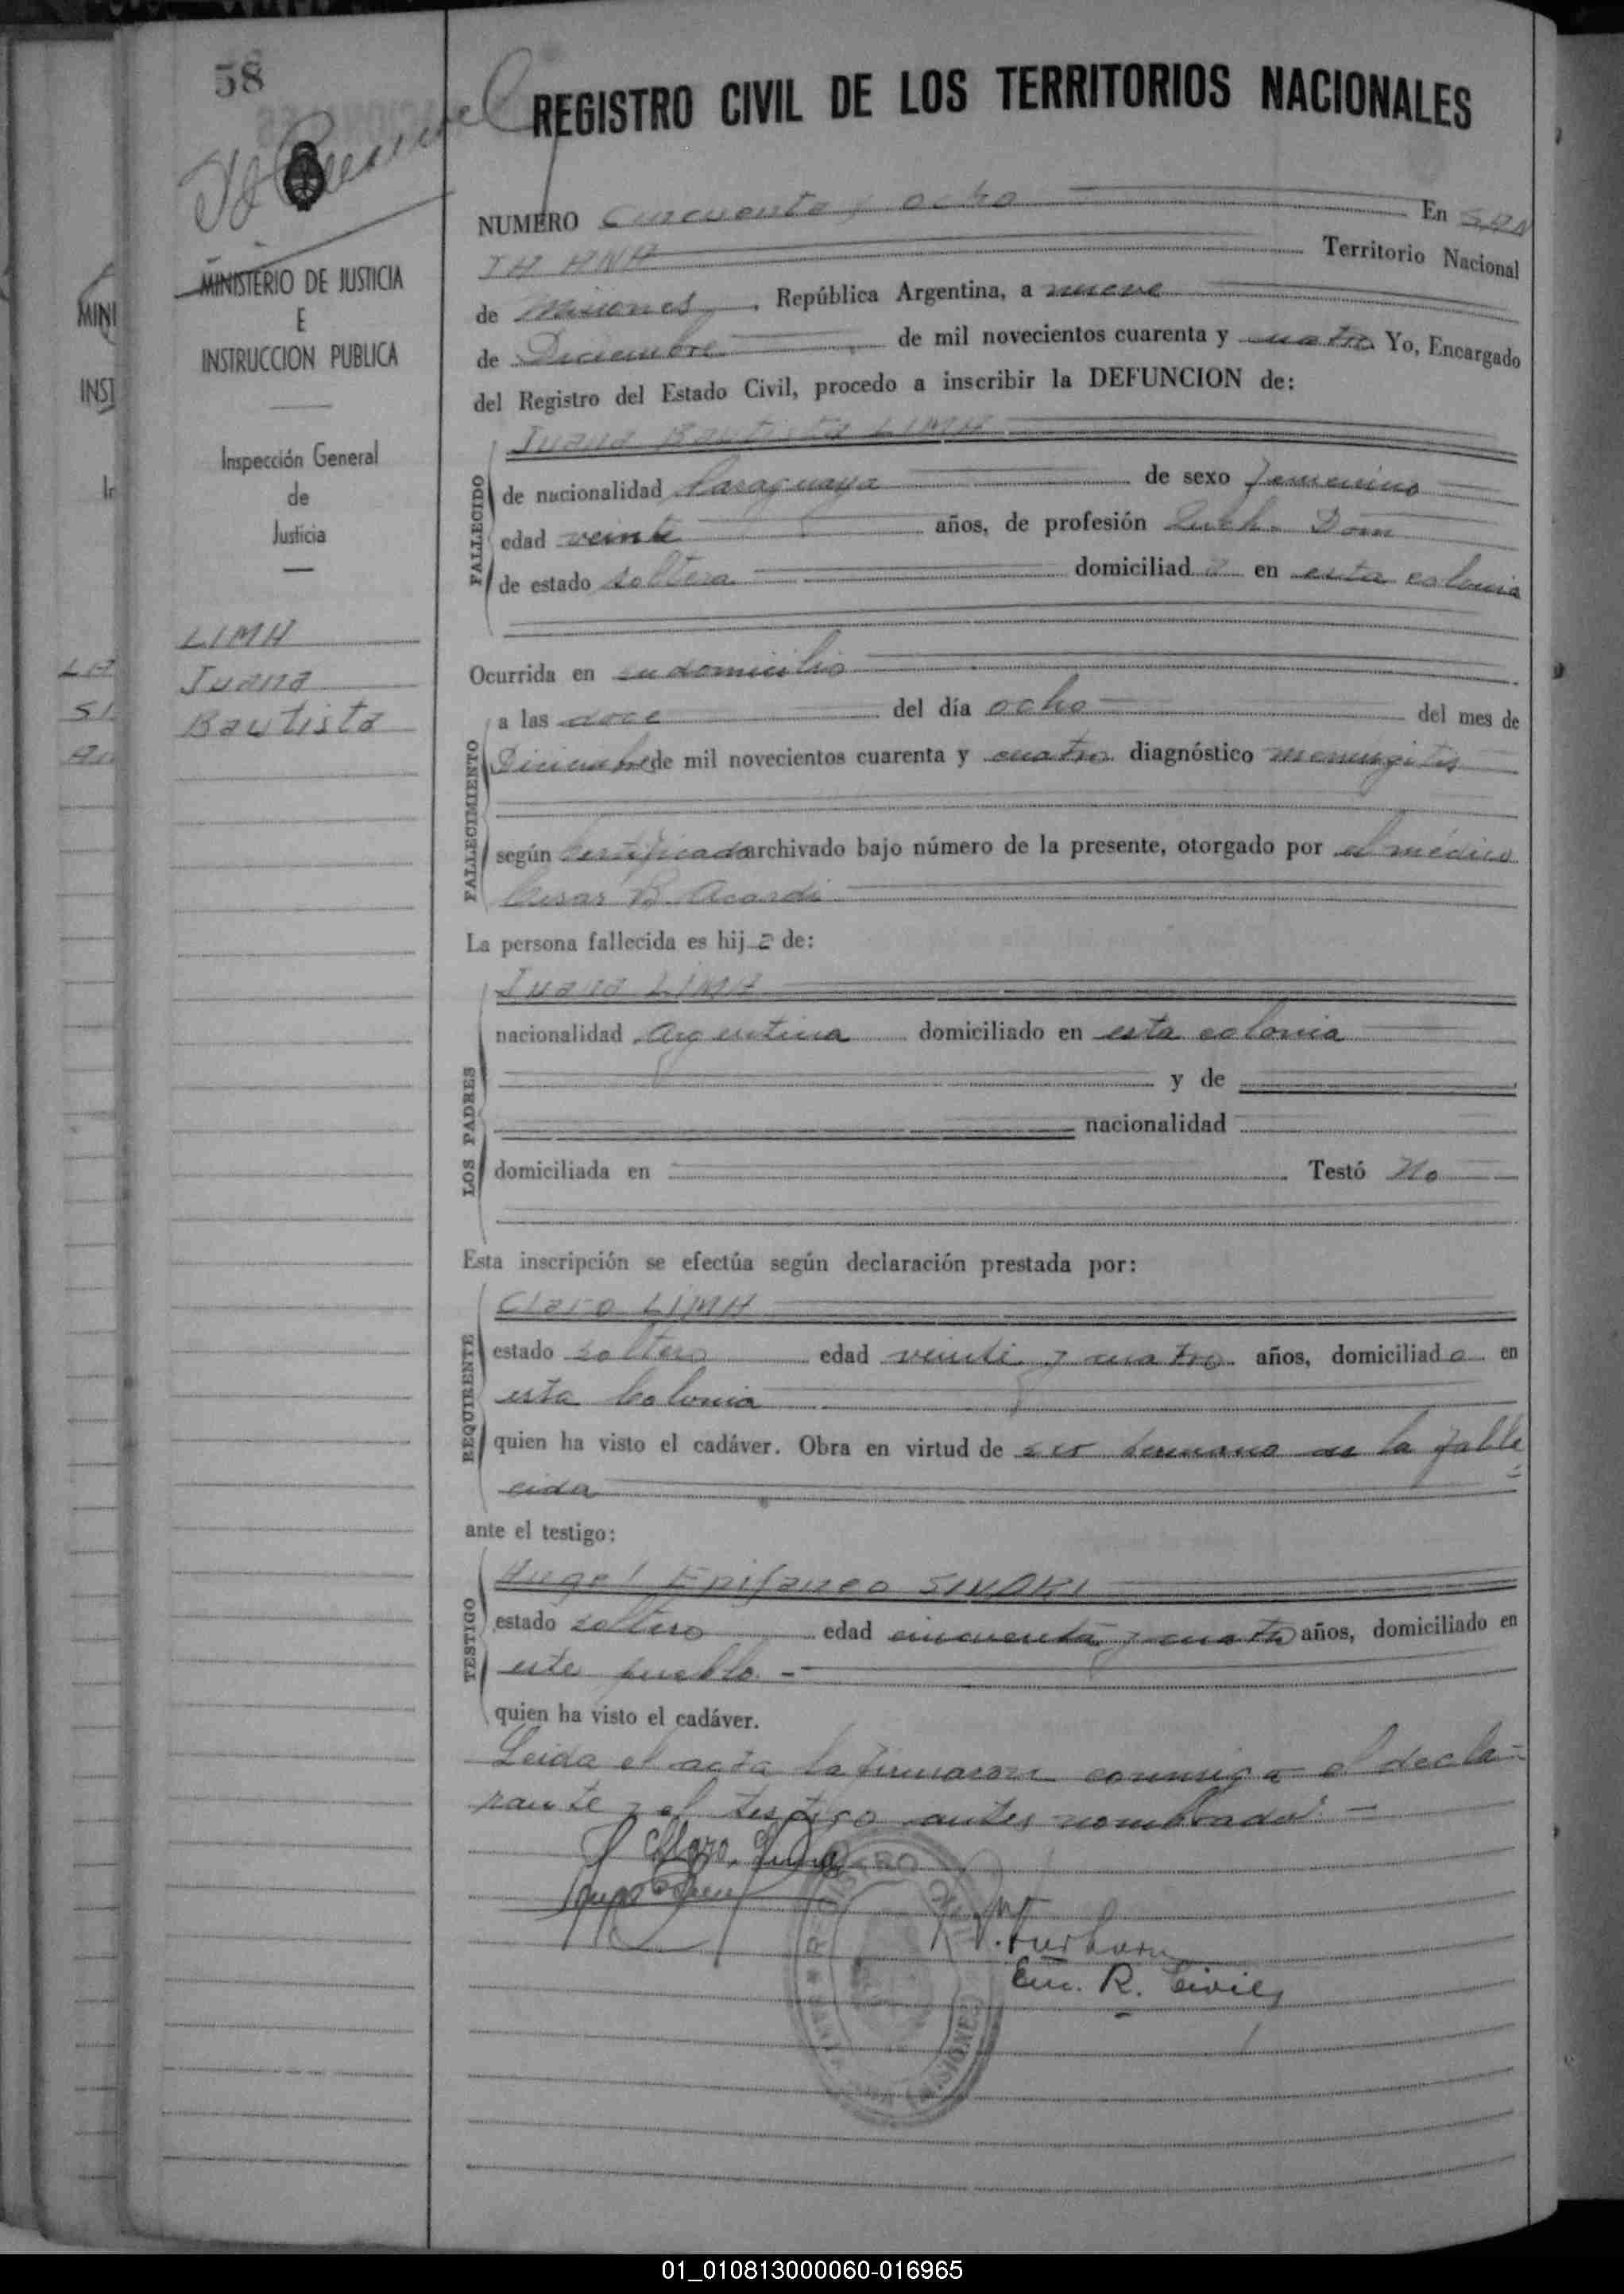 58
REGISTRO CIVIL DE LOS TERRITORIOS NACIONALES
MINISTERIO DE JUSTICIA
E
INSTRUCCION PUBLICA
Inspección General
de
Justicia
LIMA
Juana
Bautista
NUMERO Cincuenta y ocho En SAN
TA ANA Territorio Nacional
de Misiones, República Argentina, a nueve
de Diciembre de mil novecientos cuarenta y cuatro Yo, Encargado
del Registro del Estado Civil, procedo a inscribir la DEFUNCION de:
Juana Bautista LIMA
FALLECIDO
de nacionalidad Paraguaya de sexo femenino
edad veinte años, de profesión Dom
de estado soltera domiciliada en esta colonia
Ocurrida en su domicilio
FALLECIMIENTO
a las doce del día ocho del mes de
Diciembre de mil novecientos cuarenta y cuatro diagnóstico meningitis
según certificado archivado bajo número de la presente, otorgado por el médico
Cesar B. Acardi
La persona fallecida es hija de:
LOS PADRES
Juana LIMA
nacionalidad Argentina domiciliado en esta colonia
y de
nacionalidad
domiciliada en Testó No
Esta inscripción se efectúa según declaración prestada por:
REQUIRENTE
Claro LIMA
estado soltero edad veinti y cuatro años, domiciliado en
esta Colonia
quien ha visto el cadáver. Obra en virtud de ser hermano de la falle
cida
ante el testigo:
TESTIGO
Angel Epifaneo
estado soltero edad cincuenta y cuatro años, domiciliado en
este pueblo.-
quien ha visto el cadáver.
Leida el acta la firmaron conmigo el decla-
rante y el testigo antes nombrado.-
Claro Lima
Enc. R. Civil
01_010813000060-016965